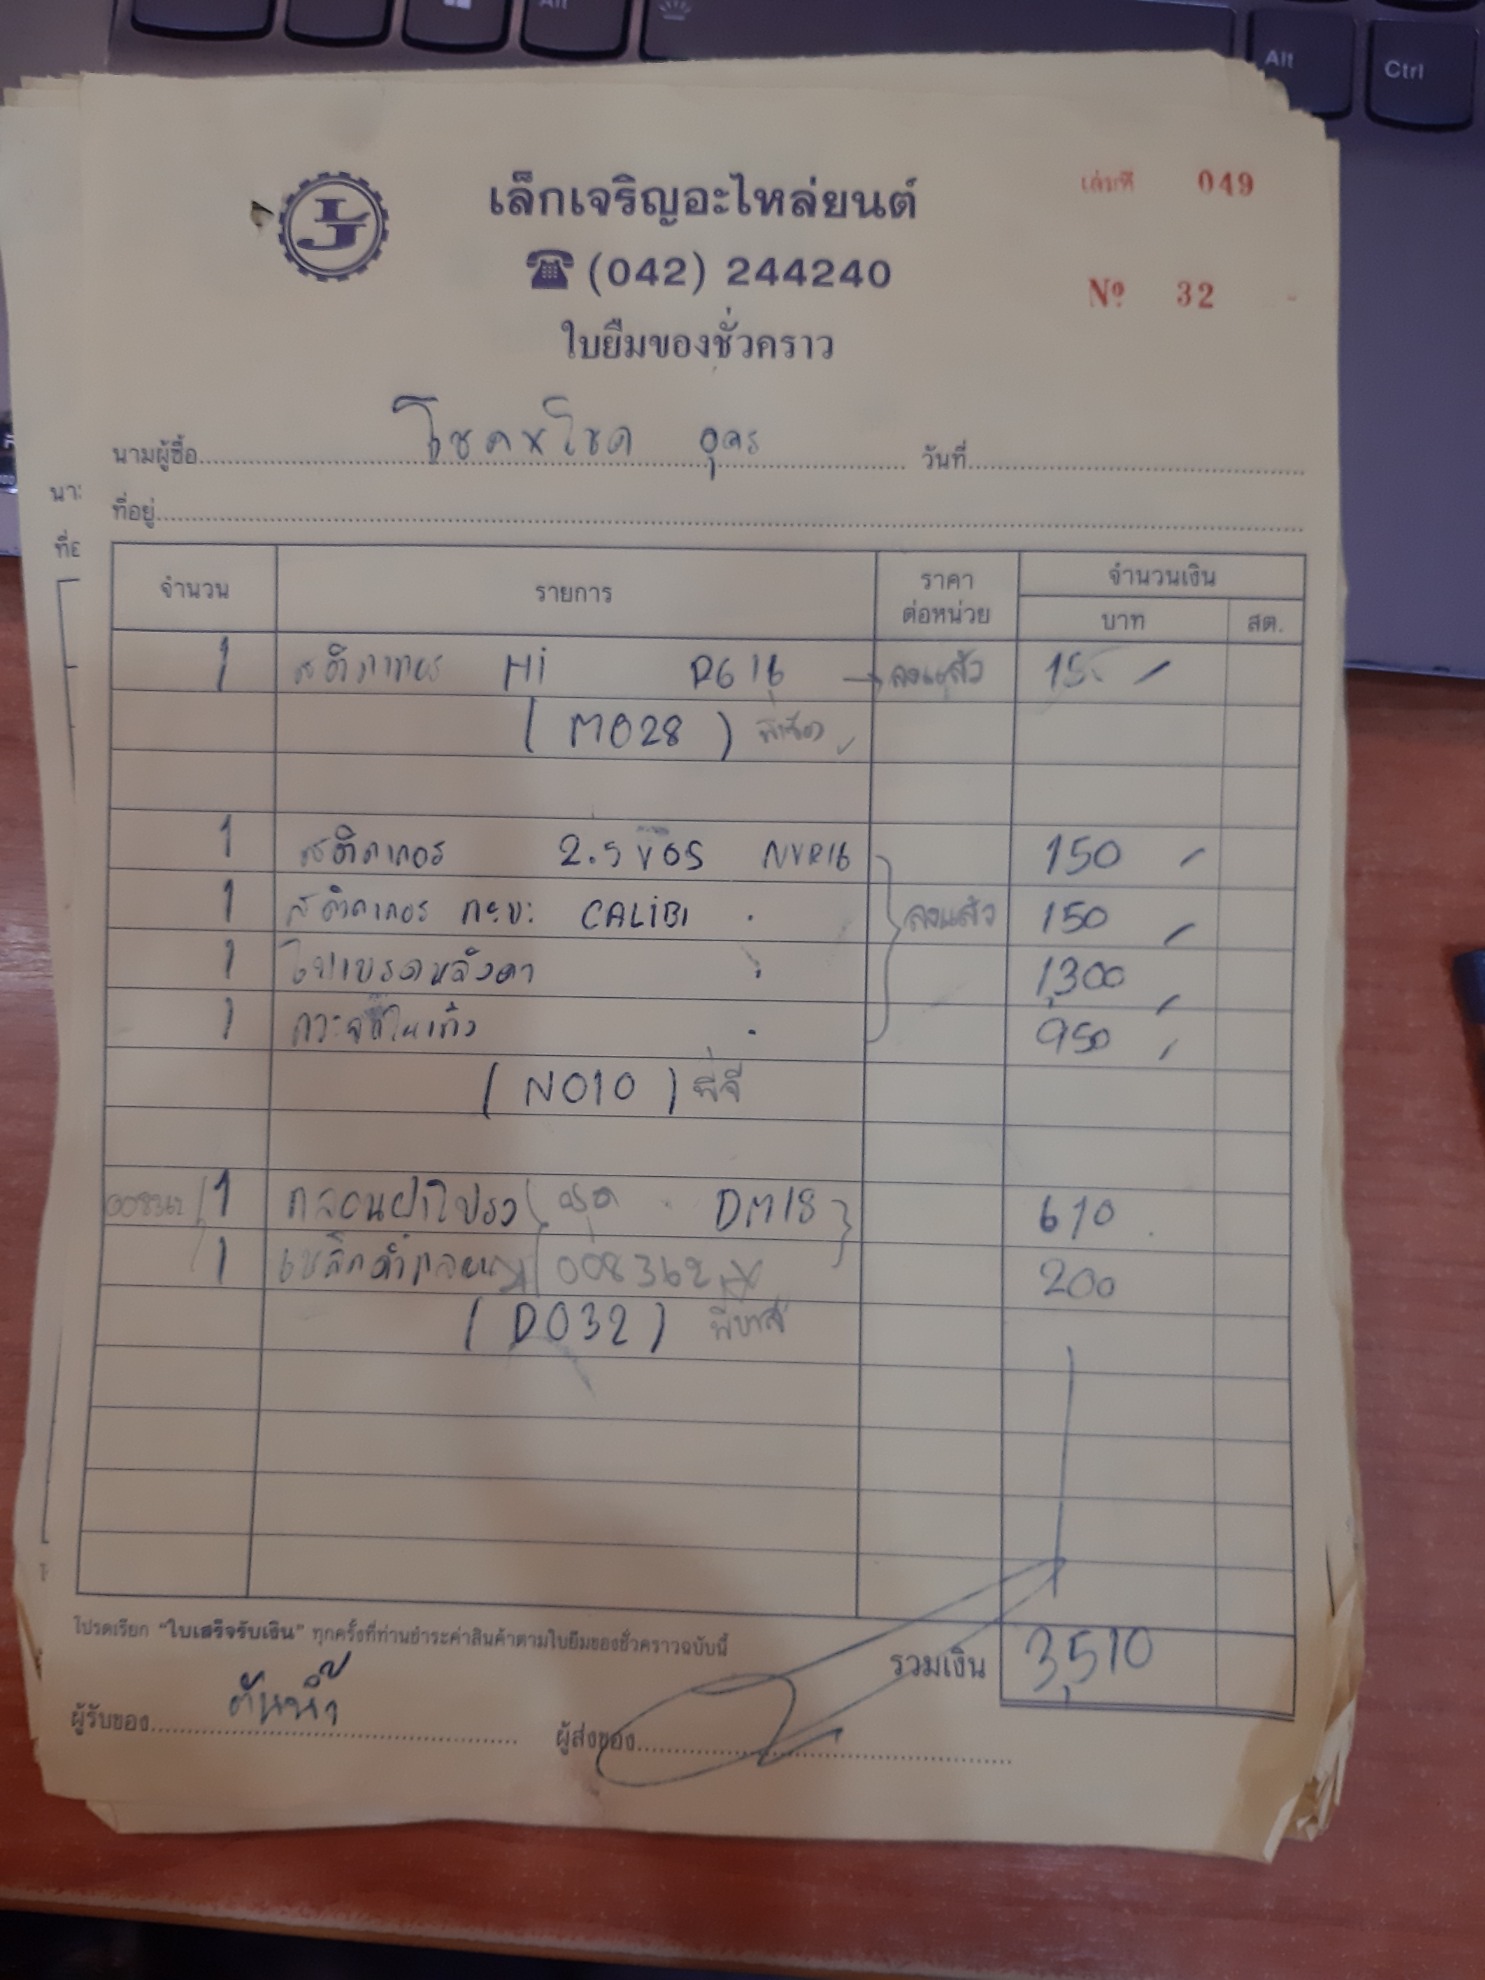 เล็กเจริญอะไหล่ยนต์
เล่มที่ 049
☎ (042) 244240
Nº 32
ใบยืมของชั่วคราว
นามผู้ซื้อ โชคนโชค อุดร วันที่
ที่อยู่
จำนวน รายการ ราคาต่อหน่วย จำนวนเงิน
บาท สต.
1 สติกเกอร์ Hi D616 ลงแล้ว 15
(M028)
1 สติกเกอร์ 2.5 NVR16 150
1 สติกเกอร์ กระบะ CALiBI ลงแล้ว 150
1 ไฟเบรคหลังคา 1,300
1 950
(N010) พี่จี
008362 1 กลอนฝาโปรง ชุด DM18 610
1 008362 200
(D032)
โปรดเรียก "ใบเสร็จรับเงิน" ทุกครั้งที่ท่านชำระค่าสินค้าตามใบยืมของชั่วคราวฉบับนี้
รวมเงิน 3,510
ผู้รับของ
ผู้ส่งของ
Alt
Alt
Ctrl